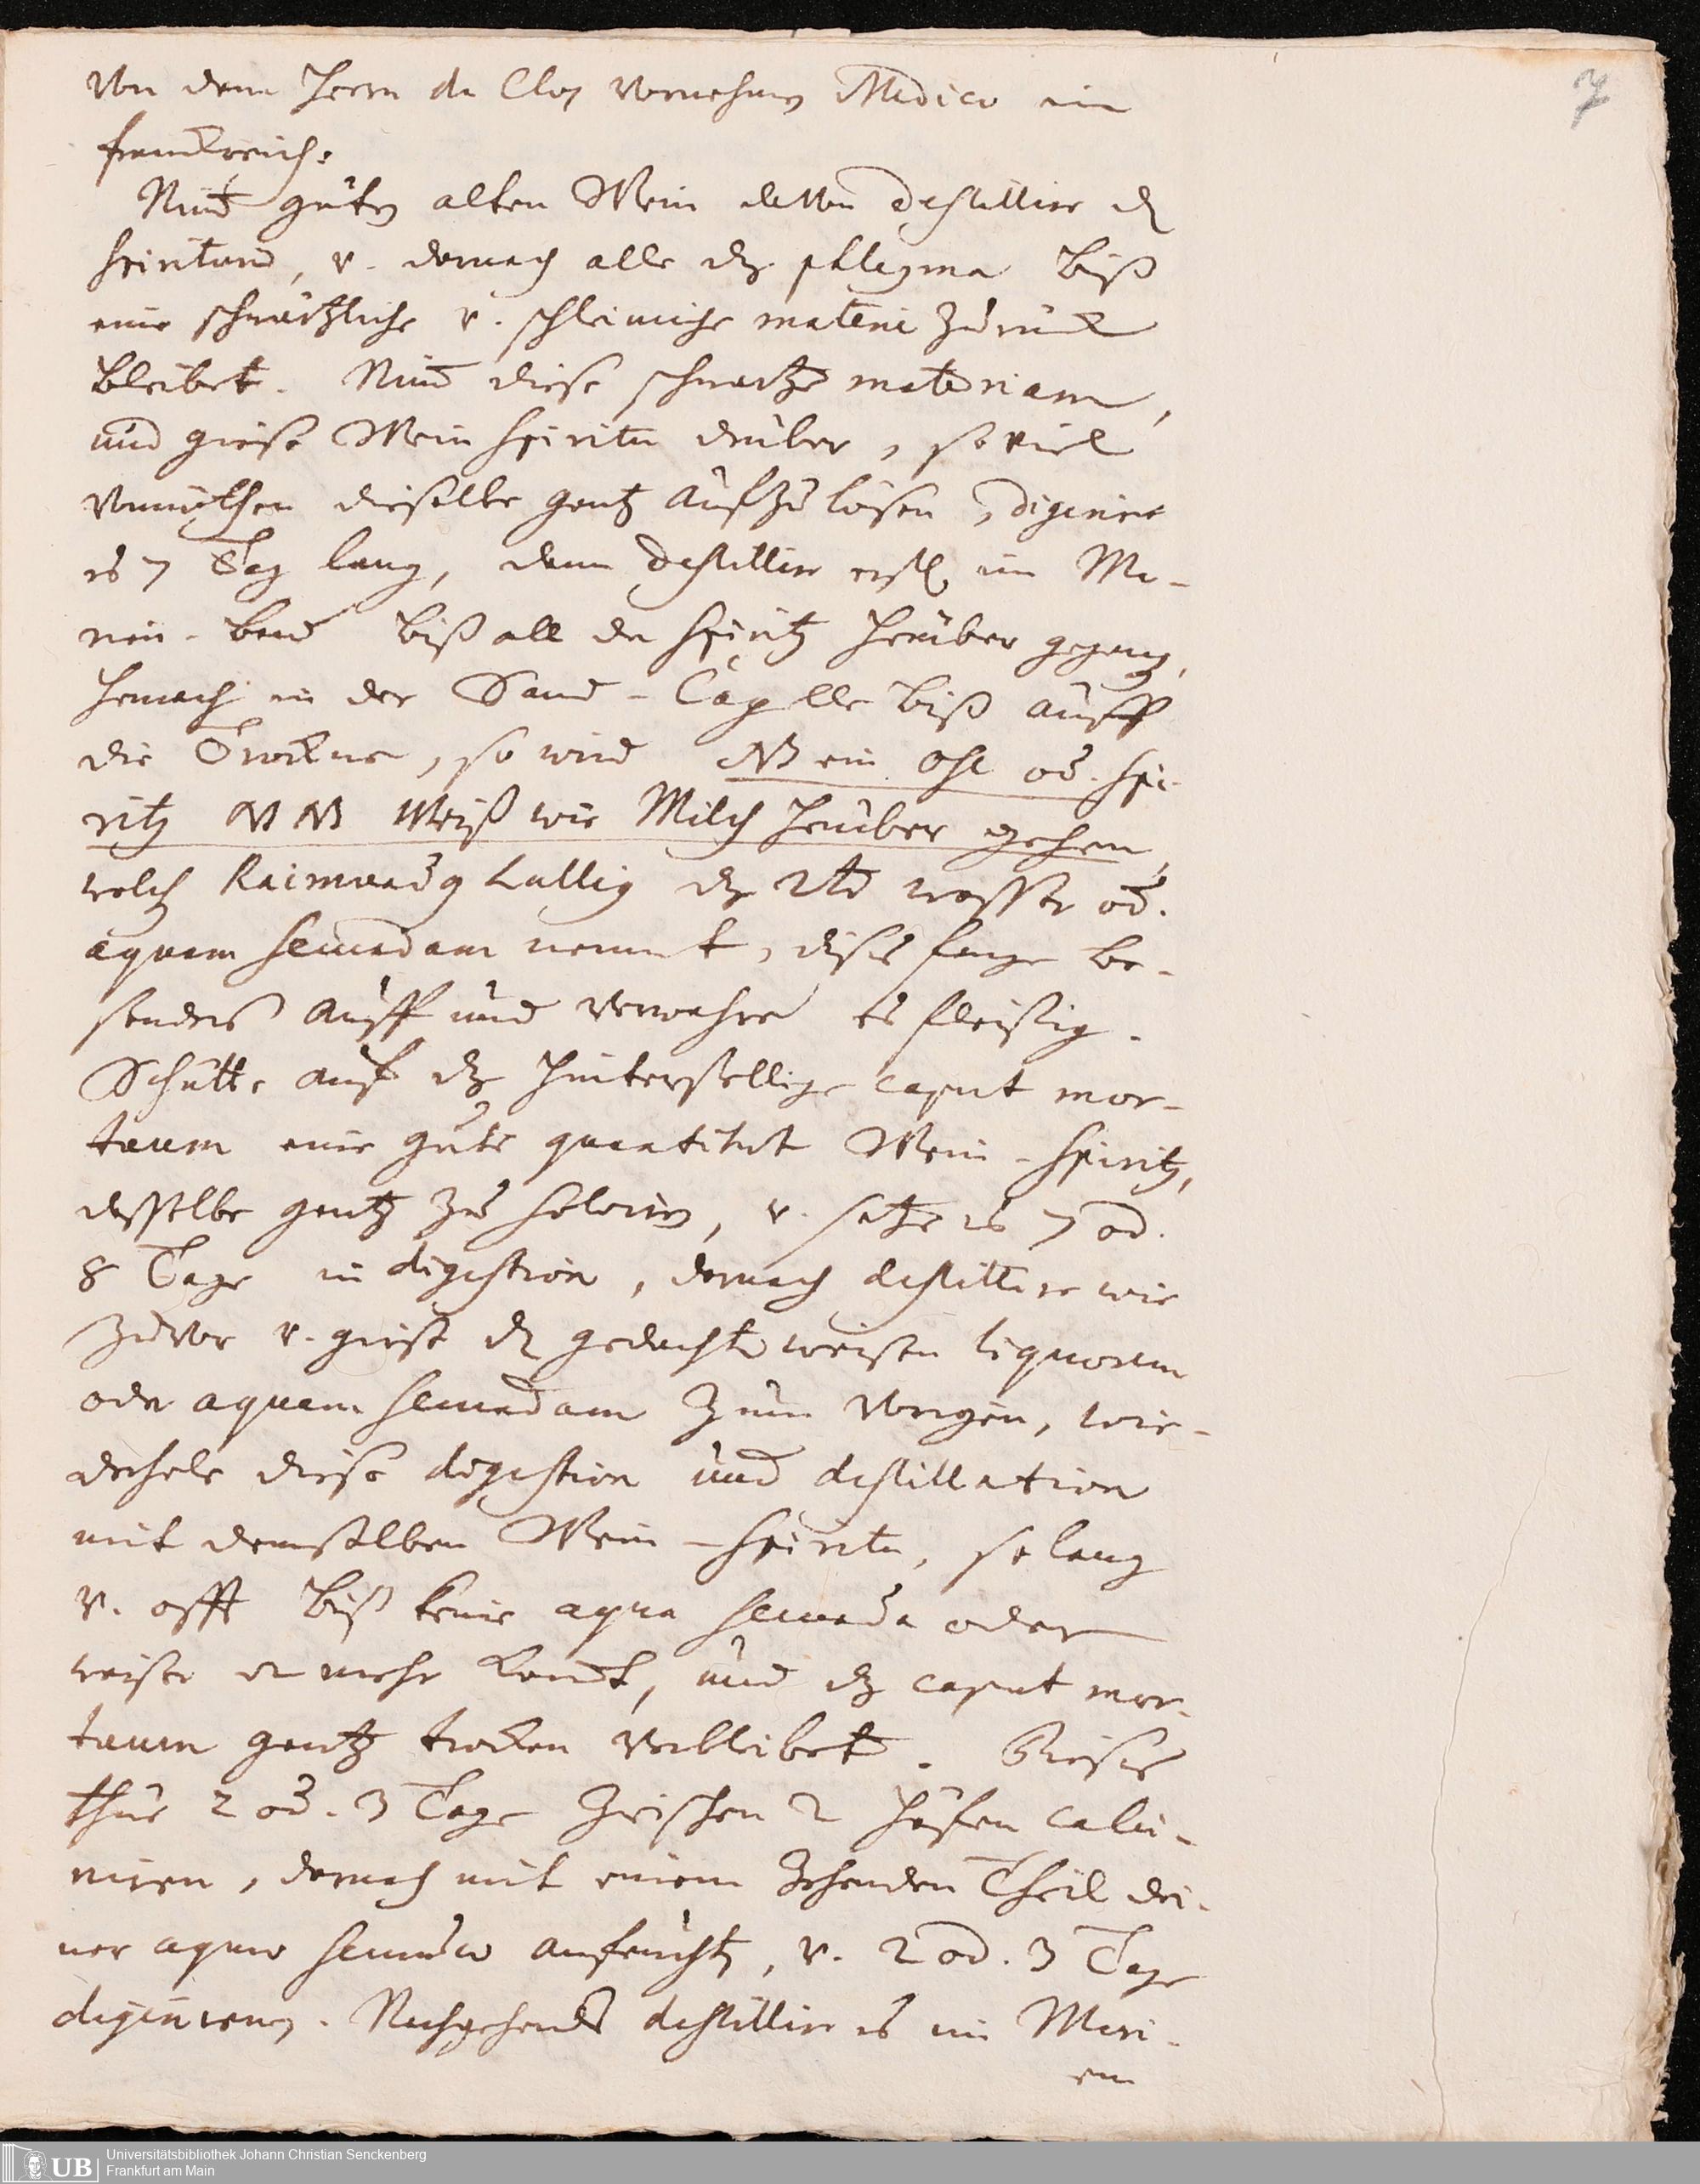 7
Von dem Herrn du Clos vornehmen Medico in
franckreich:
Nimb guten alten Wein davon destillire dz
spiritum, v. darnach alle dz phlegma biß
eine schwartzliche v. schleimige materie zurück
bleibet. Nimb diese schwartze materiam,
und giese Wein spiritu drüber, so viel
vonnöthen dieselbe gantz aufzulösen, digerire
es 7 Tag lang, dann destillire erstl. im Ma-
rien-bad biß all der spiritz herüber gegang,
hernach in der Sand-Capelle biß auff
die Trockne, so wird NB ein Ohl od. spi-
ritz NB NB Weiß wie Milch herüber gehen,
welch Raimundg Lullig dz 2te wasser od.
aquam secundam nennet, dises fange be-
sonders auff und verwahre es fleissig.
Schütte auf dz hinterstellige caput mor-
tuum eine gute quantitet Wein-spiritz,
dasselbe gantz zu solvirn, v. setze es 7 od.
8 Tage in digestion, darnach destillire wie
zuvor v. giese dz gedachte weisen liquorem
oder aquam secundam zum vorigen, wie-
derhole diese digestion und destillation
mit demselben Wein-spiritu, so lang
v. offt biß keine aqua secunda oder
weiser mehr kombt, und dz caput mor-
tuum gantz trocken verbleibet. Dieses
thue 2 od. 3 Tage zwischen 2 häfen calci-
niren, darnach mit einem Zehenden Theil dei-
ner aquae secundae anfeucht, v. 2 od. 3 Tage
digeriren. Nachgehends destillire es im Mari-
en
UB
Universitätsbibliothek Johann Christian Senckenberg
Frankfurt am Main